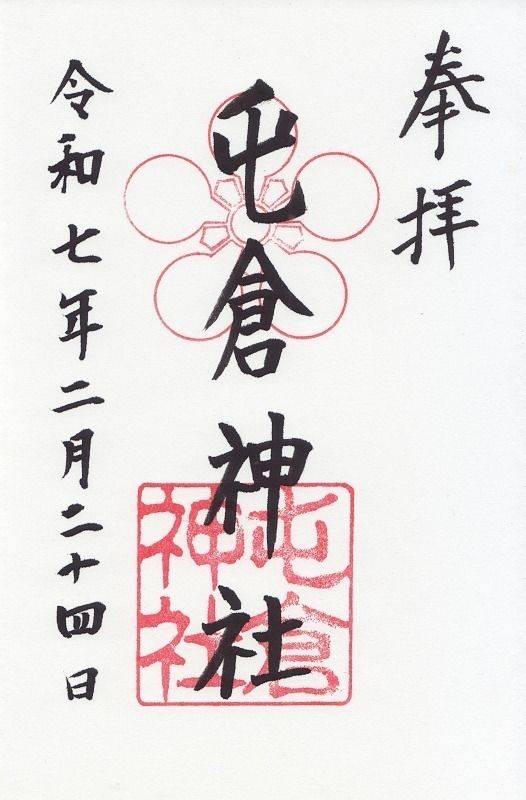 奉拝
屯倉神社
屯倉
神社
令和七年二月二十四日